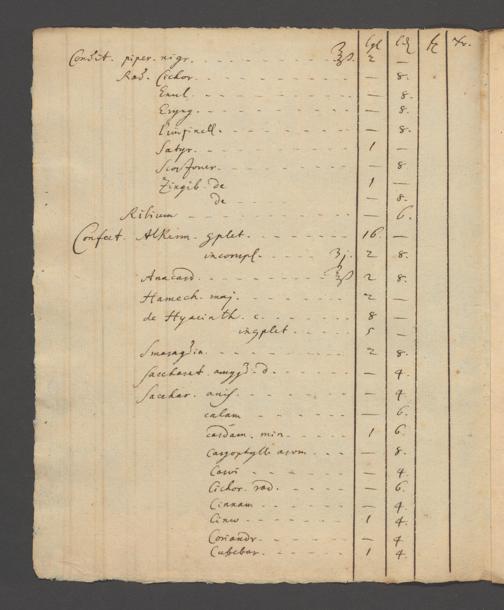 Condit. piper. nigr. ʒß. 2 —
Rad. Cichor. — 8.
Enul. — 8.
Eryng. — 8.
Pimpinell. — 8.
Satyr. 1 —
Scorzoner. — 8.
Zingib. de 1 —
de — 8.
Ribium — 6.
Confect. Alkerm. 16 —
incompl. ʒj. 2 8.
Anacard. ʒß 2 8.
Hamech. maj. 2 —
de Hyacinth. c. 8 —
5 —
Smaragdin. 2 8.
Saccharat. amygd. d. — 4.
Sacchar. anis. — 4
calam — 6.
cardam. min. 1 6.
Caryophyll. arom — 8.
Carvi — 4.
Cichor. rad. — 6.
Cinnam — 4.
Cinae 1 4.
Coriandr — 4
Cubebar. 1 4.